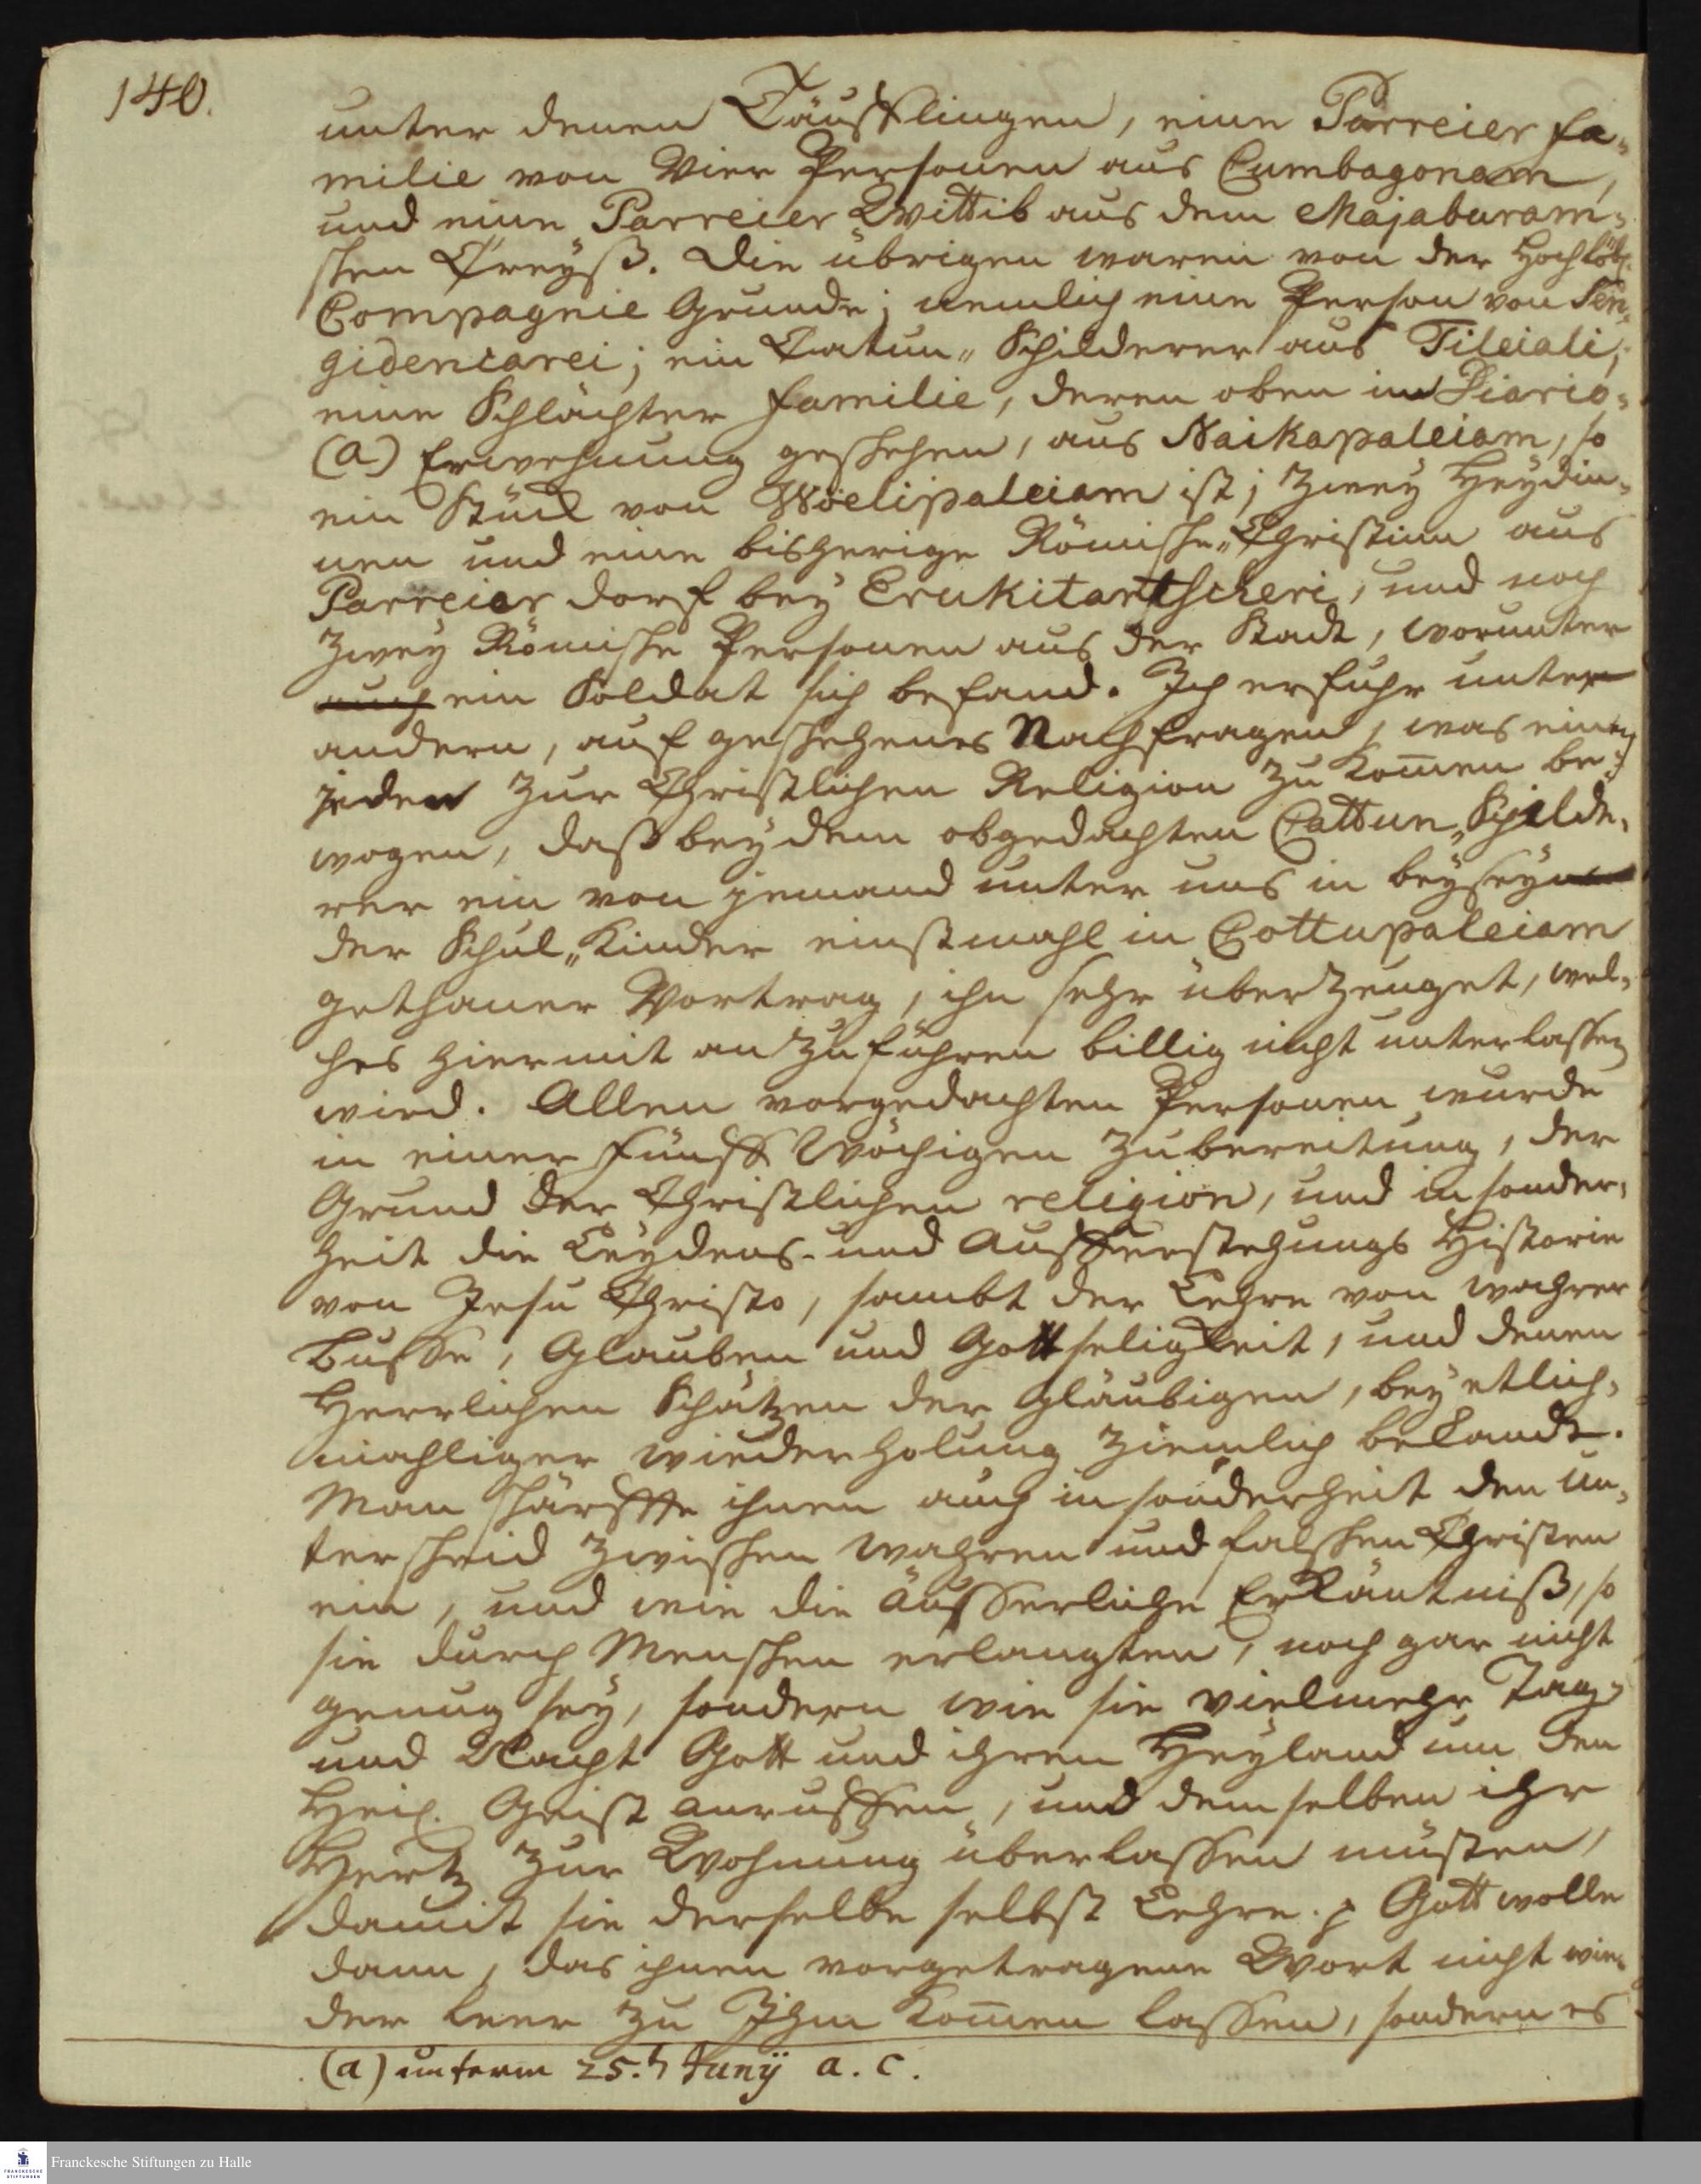 140.
unter denen Täufflingen, eine Parreier fa-
milie von Vier Personen aus Cumbagonam,
und eine Parreier Wittib aus dem Majaburam-
schen Creyß. Die übrigen waren von der Hochlöbl.
Compagnie Grunde; nemlich eine Person von San-
gidencarei; ein Catun-Schilderer aus Tileiali;
eine Schlächter familie, deren oben im Diario-
(a) Erwehnung geschehen, aus Naikapaleiam, so
ein Stück von Wöelipaleiam ist; zwey Heydin-
nen und eine bißherige Römische Christinn aus
Parreier dorf bey Erukitantscheri, und noch
zwey Römische Personen aus der Stadt, worunter
auch ein Soldat sich befand. Ich erfuhr unter
andern, auf geschehenes Nachfragen, was einen
jeden zur Christlichen Religion zu kom̄en be-
wogen, daß bey dem obgedachten Cattun-Schilde-
rer ein von jemand unter uns in beyseyn
der Schul-Kinder einstmahl in Cottupaleiam
gethaner Vortrag, ihn sehr überzeuget, wel-
ches hiermit anzuführen billig nicht unterlassen
wird. Allen vorgedachten Personen wurde
in einer fünff Wöchigen Zubereitung, der
Grund der Christlichen religion, und insonder-
heit die Leydens- und Aufferstehungs Historie
von Jesu Christo, sambt der Lehre von wahrer
Busse, Glauben und Gottseligkeit, und denen
Herrlichen Schätzen der Gläubigen, bey etlich-
mahliger wiederholung ziemlich bekandt.
Man schärffte ihnen auch insonderheit den un-
terscheid zwischen wahren und falschen Christen
ein, und wie die äusserliche Erkäntniß, so
sie durch Menschen erlangten, noch gar nicht
genug sey, sondern wie sie vielmehr Tag-
und Nacht Gott und ihren Heyland um den
Heil. Geist anruffen, und demselben ihr
Hertz zur Wohnung überlassen müsten,
damit sie derselbe selbst Lehre. Gott wolle
dann, das ihnen vorgetragene Wort nicht wie-
der leer zu Ihm kom̄en lassen, sondern es
(a) unterm 25.t Junÿ a. c.
Franckesche Stiftungen zu Halle
FRANCKESCHE
STIFTUNGEN